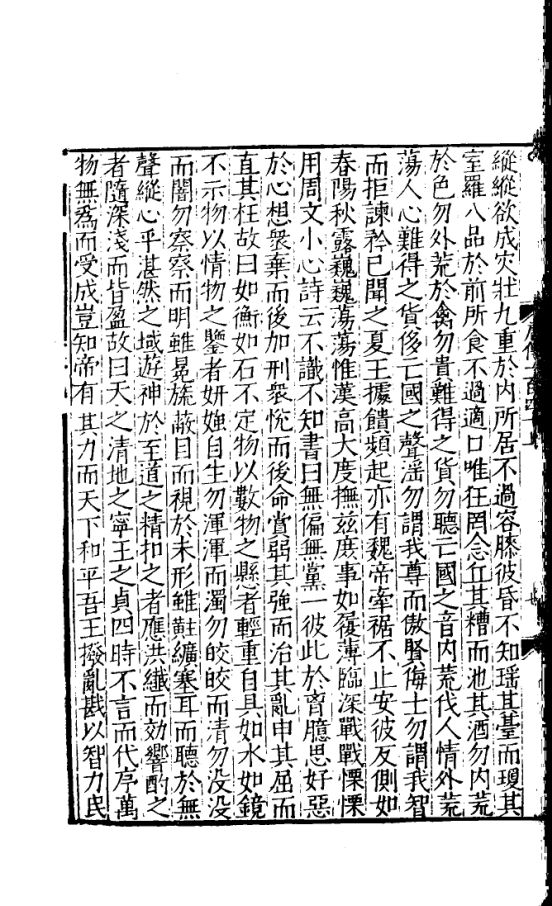 縱縱欲成灾壯九重於内所居不過容膝彼昏不知瑶其臺而瓊其
室羅八品於前所食不過適口唯狂罔念丘其糟而池其酒勿内荒
於色勿外荒於禽勿貴難得之貨勿聽亡國之音内荒伐人情外荒
蕩人心難得之貨侈亡國之聲淫勿謂我尊而傲賢侮士勿謂我智
而拒諫矜己聞之夏王據饋頻起亦有魏帝牽裾不止安彼反側如
春陽秋露巍巍蕩蕩惟漢高大度撫兹庶事如履薄臨深戰戰慄慄
用周文小心詩云不識不知書曰無偏無黨一彼此於胷臆思好惡
於心想衆棄而後加刑衆悅而後命賞弱其強而治其亂申其屈而
直其枉故曰如衡如石不定物以數物之縣者輕重自具如水如鏡
不示物以情物之鑒者妍媸自生勿渾渾而濁勿皎皎而清勿没没
而闇勿察察而明雖冕旒蔽目而視於未形雖黈纊塞耳而聽於無
聲縱心乎湛然之域遊神於至道之精扣之者應洪纖而効響酌之
者隨深淺而皆盈故曰天之清地之寧王之貞四時不言而代序萬
物無爲而受成豈知帝有其力而天下和平吾王撥亂戡以智力民